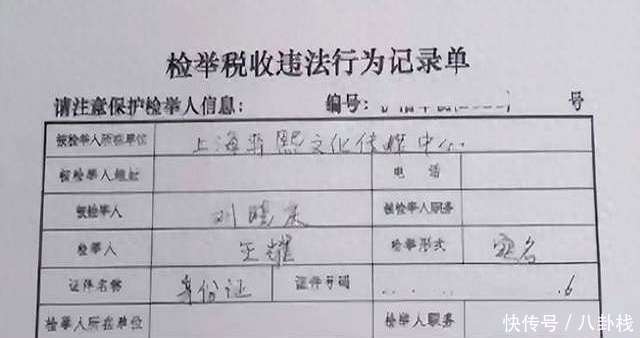 检举税收违法行为记录单
请注意保护检举人信息: 编号: 号
被检举人所在单位 上海 熙文化传媒中心
被检举人地址 电 话
被检举人 刘晓 被检举人职务
检举人 王 检举形式 实名
证件名称 身份证 证件号码 6
检举人所在单位 检举人职务
快传号/八卦栈